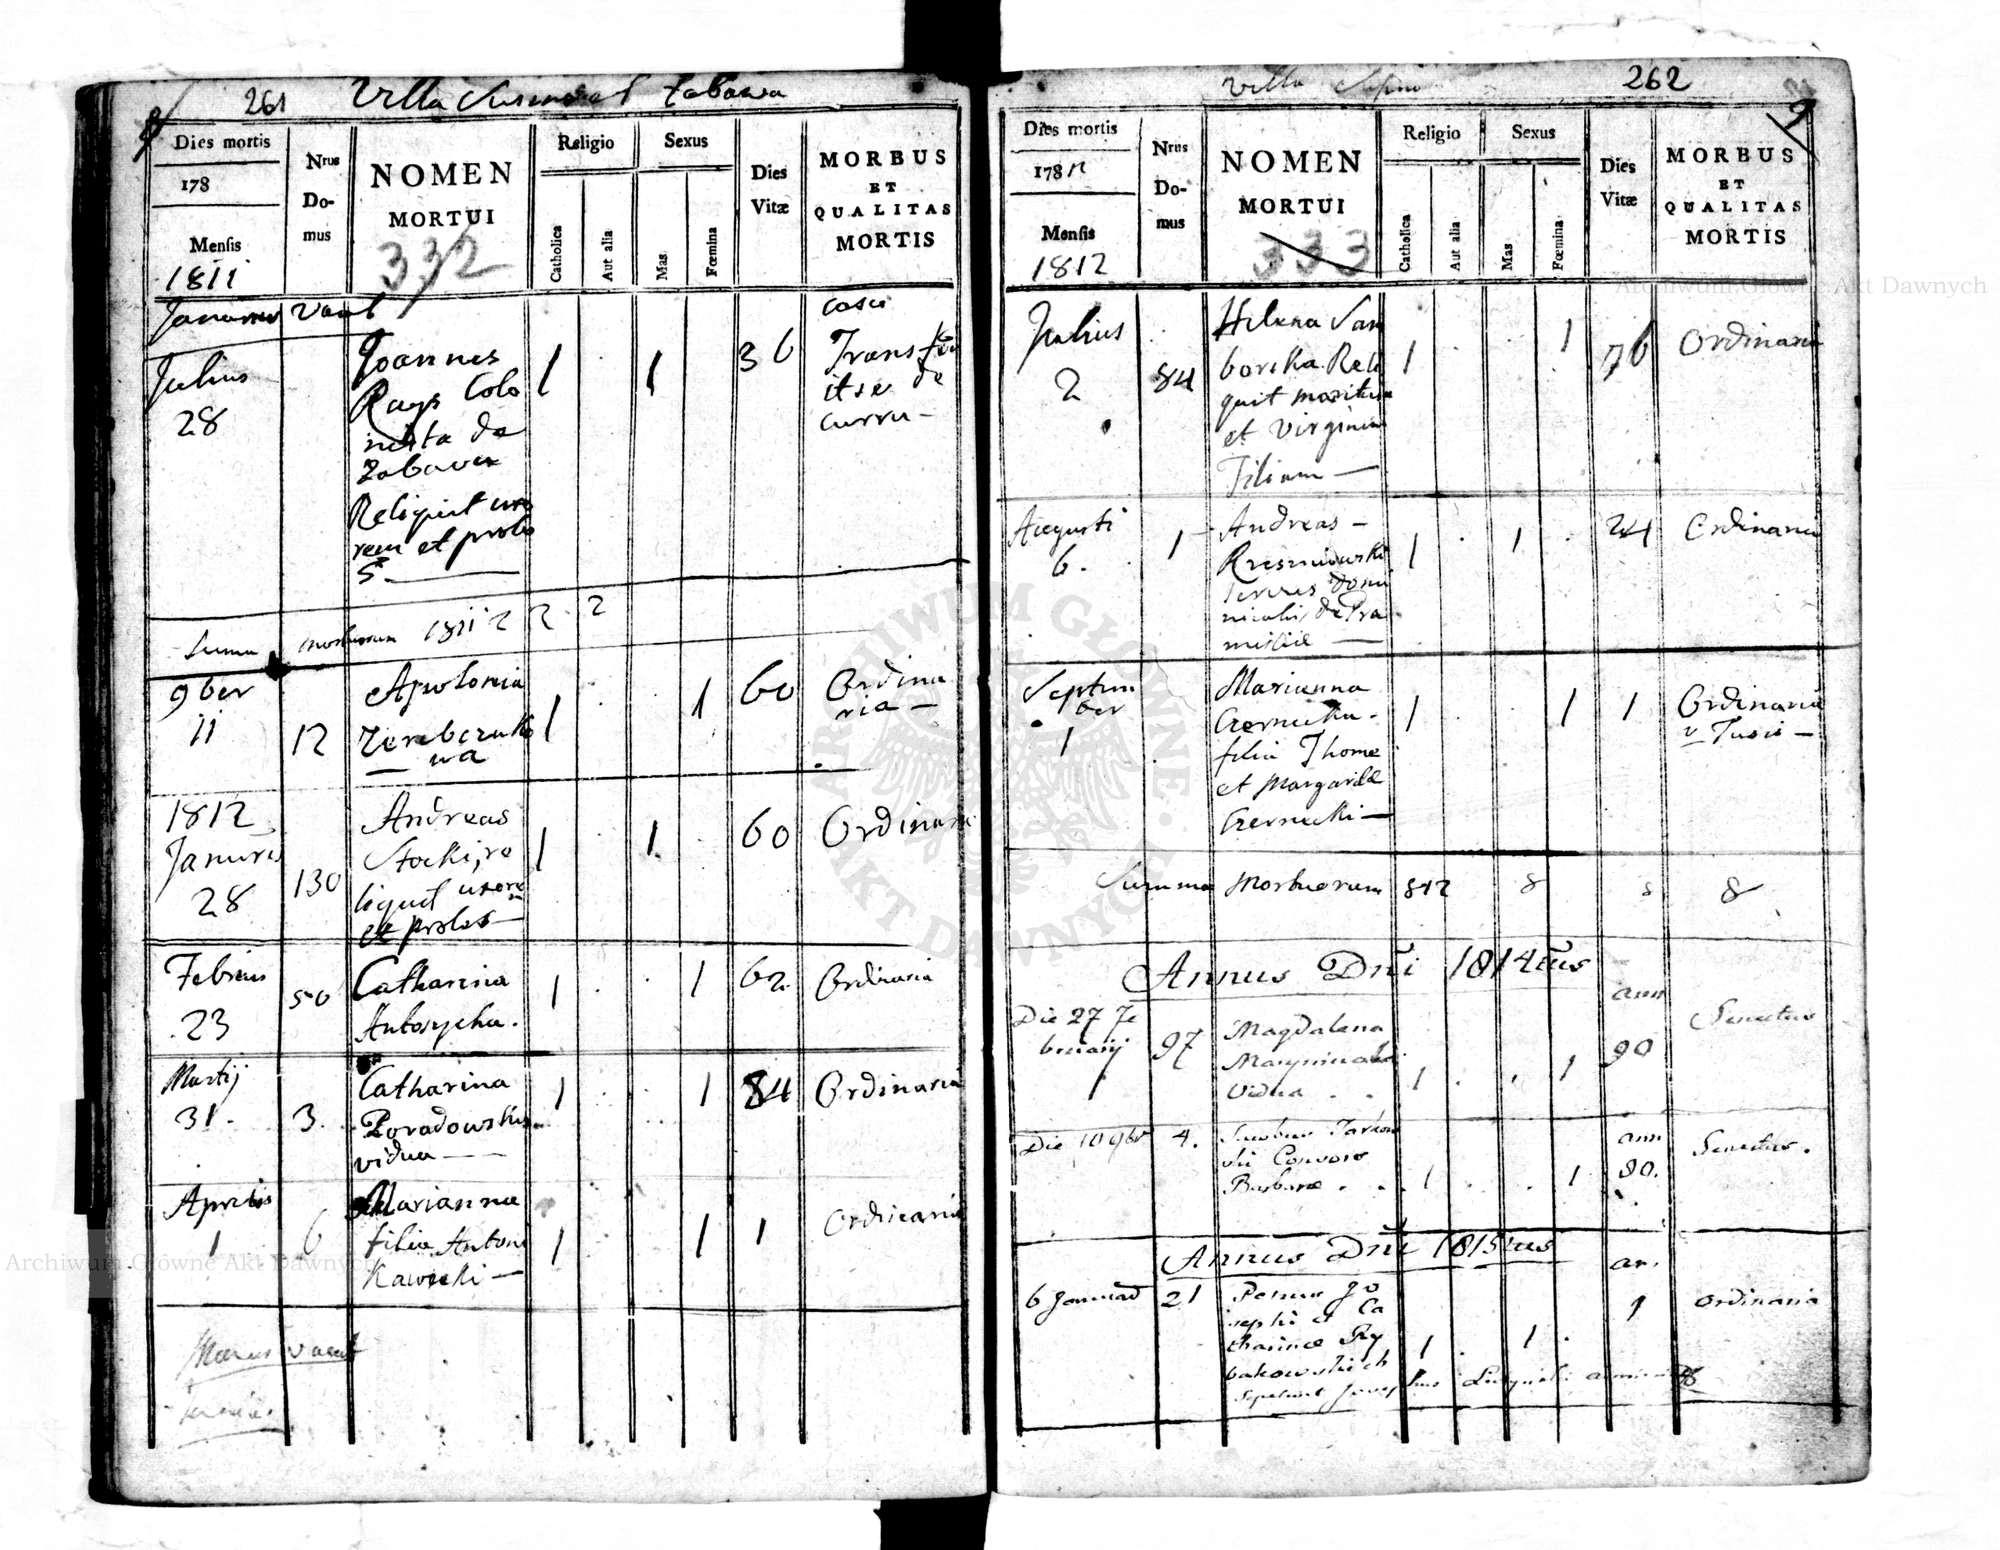 261 Villa et Zabawa
Dies mortis
178
Mensis
1811
Nrus
Do-
mus
NOMEN
MORTUI
332
Religio
Catholica
Aut alia
Sexus
Mas
Fœmina
Dies
Vitæ
MORBUS
ET
QUALITAS
MORTIS
Januarius vacat
Julius
28
Joannes
Rays Colo
nista de
Zabawa
Reliquit uxo
rem et proles
5.
1 . 1 . 36
casu
Transfer
it se de
curru -
Summa mortuorum 1811 2 2 2
9ber
11
12
Apolonia
wa
1 . . 1 60
Ordina
ria -
1812
Januaris
28
130
Andreas
Stocki, re
liquit uxore
m
et proles -
1 . 1 . 60
Ordinaria
Februis
23
50
Catharina
Antosycha.
1 . . 1 62
Ordinaria
Martij
31.
3.
Catharina
Poradowska
vidua
1 . . 1 84
Ordinaria
Aprilis
1
6
Marianna
filia Antoni
Kawecki -
1 . . 1 1
Ordinaria
vacat
262
Villa
9
Dies mortis
1781
Mensis
1812
Nrus
Do-
mus
NOMEN
MORTUI
333
Religio
Catholica
Aut alia
Sexus
Mas
Fœmina
Dies
Vitæ
MORBUS
ET
QUALITAS
MORTIS
Julius
2
84
Helena Sam
borska Reli
quit maritum
et virginem
Filiam -
1 . . 1 76
Ordinaria
Augusti
6.
1
Andreas -
nicalis de Pra
1 . 1 . 24
Ordinaria
Septem
ber
1
Marianna
Czernecka.
filia Thome
et Margaridæ
Czernecki -
1 . . 1 1
Ordinaria
v Tusis -
Summa Mortuorum 812 8 8 8
Annus Dñi 1814tus
Die 27 Fe
bruarij
97
Magdalena
Vidua . .
1 . . 1
ann
90
Senectus
Die 10 9br 4.
Barbara . .
1 . . 1
ann
80.
Senectus.
Annus Dñi 1815tus
6 Januarii 21
sephi et Ca
tharinæ Ry
bakowskich
1 . 1 .
an.
Ordinaria